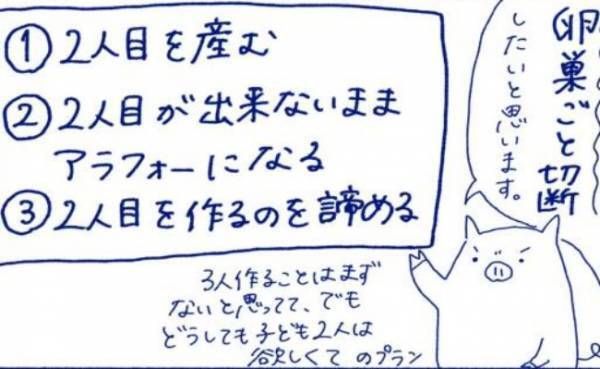 卵巣ごと切断
したいと思います。
①2人目を産む
②2人目が出来ないまま
アラフォーになる
③2人目を作るのを諦める
3人作ることはまず
ないと思ってて、でも
どうしても子ども2人は
欲しくて のプラン